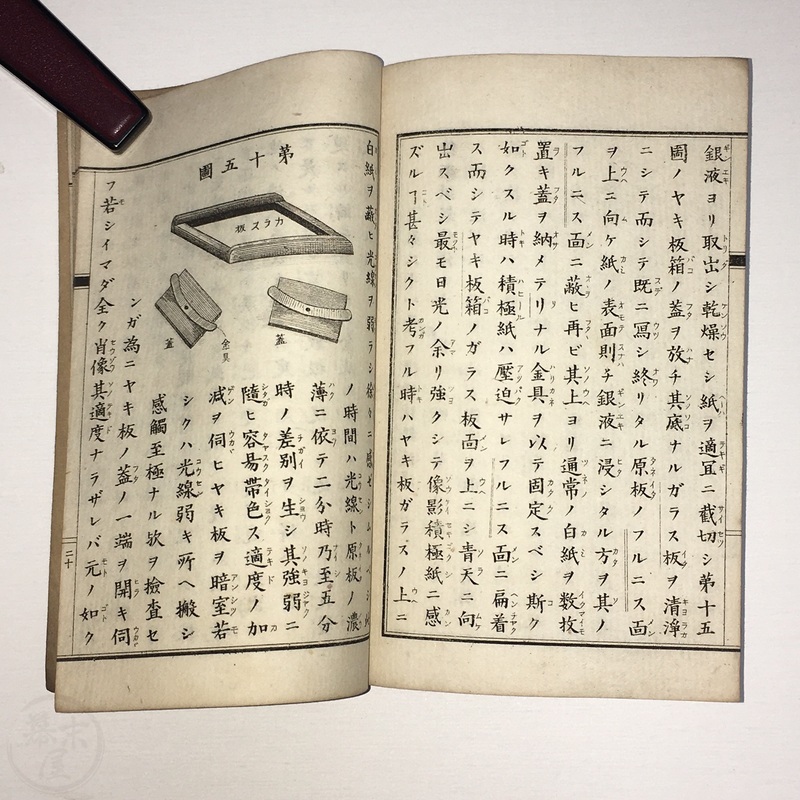 銀液ヨリ取出シ乾燥セシ紙ヲ適宜ニ截切シ第十五
圖ノヤキ板箱ノ蓋ヲ放チ其底ナルガラス板ヲ清淨
ニシテ而シテ既ニ寫シ終リタル原板ノフルニス面
ヲ上ニ向ケ紙ノ表面則チ銀液ニ浸シタル方ヲ其ノ
フルニス面ニ蔽ヒ再ビ其上ヨリ通常ノ白紙ヲ数枚
置キ蓋ヲ納メテリナル金具ヲ以テ固定スベシ斯ク
如クスル時ハ積極紙ハ壓迫サレフルニス面ニ扁着
ス而シテヤキ板箱ノガラス板面ヲ上ニシ青天ニ向
出スベシ最モ日光ノ余リ強クシテ像影積極紙ニ感
ズルヿ甚々シクト考フル時ハヤキ板ガラスノ上ニ
白紙ヲ蔽ヒ光線ヲ弱ラシ徐々ニ感ゼシムルベシ
第十五圖
ガラス板
蓋
金具
蓋
ノ時間ハ光線ト原板ノ濃
薄ニ依テ二分時乃至五分
時ノ差別ヲ生シ其強弱ニ
隨ヒ容易帶色ス適度ノ加
减ヲ伺ヒヤキ板ヲ暗室若
シクハ光線弱キ所ヘ搬シ
感觸至極ナル欤ヲ撿査セ
ンガ為ニヤキ板ノ蓋ノ一端ヲ開キ伺
フ若シイマダ全ク肖像其適度ナラザレバ元ノ如ク
二十